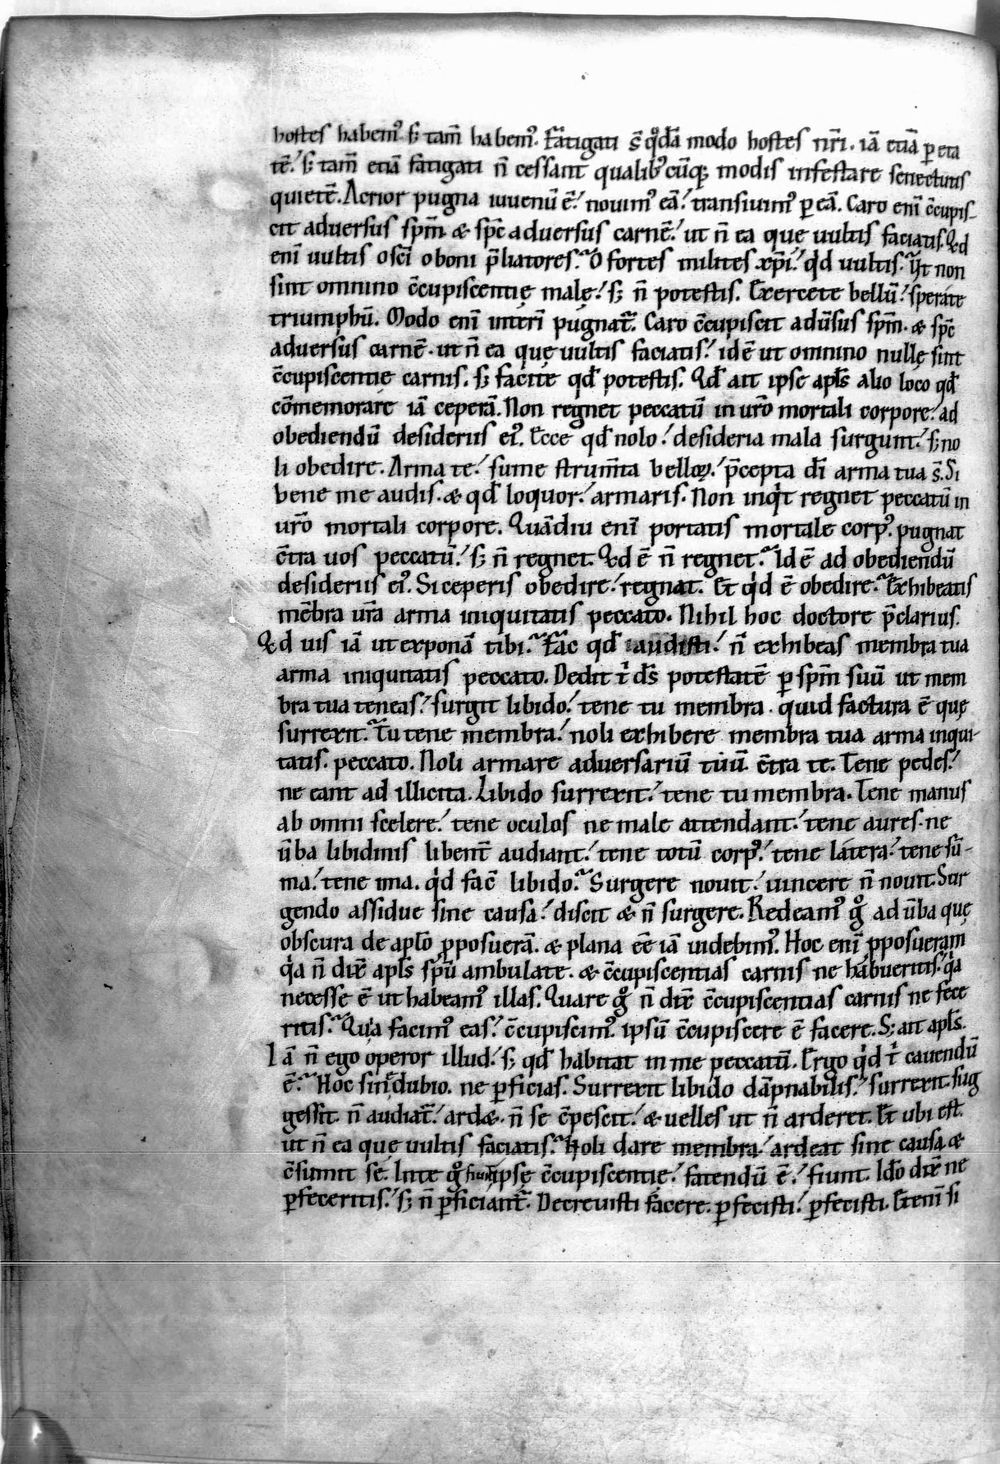 hostes habem᷒ s; tam̄ habem᷒. Fātigati s̄ q͡dā modo hostes nr̄i. iā etiā ꝑ eta
tē. s; tam̄ etiā fatigati n̄ cessant qualib᷒cūq; modis infestare senectutis
quietē. Acrior pugna iuuenū ē. nouim᷒ eā. transiuim᷒ ꝑ eā. Caro eni c̄cupis
cit aduersus sp̄m. & sp̄c aduersus carnē. ut n̄ ea quę uultis faciatis. Qd
enī uultis o sc̄i o boni p̄liatores. O fortes milites xp̄i. qd uultis. Ut non
sint omnino c̄cupiscentię malę. s; n̄ potestis. Exercete bellū. sperate
triumphū. Modo enī interī pugnat̄. Caro c̄cupiscit adūsus sp̄m. & sp̄c
aduersus carnē. ut n̄ ea quę uultis faciatis. id ē ut omnino nullę sint
c̄cupiscentie carnis. s; facite qd potestis. Qd ait ipse apl̄s alio loco qd
cōmemorare iā ceperā. Non regnet peccatū in ur̄o mortali corpore. ad
obediendū desideriis ei᷒. Ecce qd nolo. desideria mala surgunt. s; no
li obedire. Arma te. sume strum̄ta belloꝝ. p̄cepta dī arma tua s̄. Si
bene me audis. & qd loquor. armaris. Non inq̇t regnet peccatū in
ur̄o mortali corpore. Quādiu enī portatis mortale corp᷒. pugnat
c̄tra uos peccatū. s; n̄ regnet. Qd ē n̄ regnet. Id ē ad obediendū
desideriis ei᷒. Si ceperis obedire. regnat. Et qd ē obedire. Exhibeatis
mēbra ur̄a arma iniquitatis peccato. Nihil hoc doctore p̄clarius.
Qd uis iā ut exponā tibi. Fac qd audisti. n̄ exhibeas membra tua
arma iniquitatis peccato. Dedit t̄ ds̄ potestatē ꝑ sp̄m suū ut mem
bra tua teneas. surgit libido. tene tu membra. quid factura ē quę
surrexit. Tu tene membra. noli exhibere membra tua arma iniqui-
tatis. peccato. Noli armare aduersariū tuū c̄tra te. Tene pedes.
ne eant ad illicita. Libido surrexit. tene tu membra. Tene manus
ab omni scelere. tene oculos ne male attendant. tene aures. ne
ūba libidinis libent̄ audiant. tene totū corp᷒. tene latera. tene sū-
ma. tene ima. qd fac̄ libido. Surgere nouit. uincere n̄ nouit. Sur
gendo assidue sine causa. discit & n̄ surgere. Redeam᷒ g̊ ad ūba quę
obscura de aplō ꝓposuerā. & plana eē iā uidebim᷒. Hoc enī ꝓposueram
q̇a n̄ dix̄ apl̄s spū ambulate. & c̄cupiscentias carnis ne habueritis. q̇a
necesse ē ut habeam᷒ illas. Quare g̊ n̄ dix̄ c̄cupiscentias carnis ne fece
ritis. Quia facim᷒ eas. c̄cupiscim᷒. ipsū c̄cupiscere ē facere. S; ait apl̄s.
Iā n̄ ego operor illud. s; qd habitat in me peccatū. Ergo qd t̄ cauendū
ē. Hoc sin̄ dubio. ne ꝑficias. Surrexit libido dāpnabilis. surrexit. sug
gessit. n̄ audiat̄. ardet. n̄ se c̄pescit. & uelles ut n̄ arderet. Et ubi est.
ut n̄ ea quę uultis faciatis. Noli dare membra. ardeat sine causa. &
c̄sumit se. In te g̊ fiunt ipsę c̄cupiscentię. fatendū ē. fiunt. Idō dix̄ ne
ꝑfeceritis. s; n̄ ꝑficiant̄. Decreuisti facere. ꝑfecisti. ꝑfecisti. Etenī si